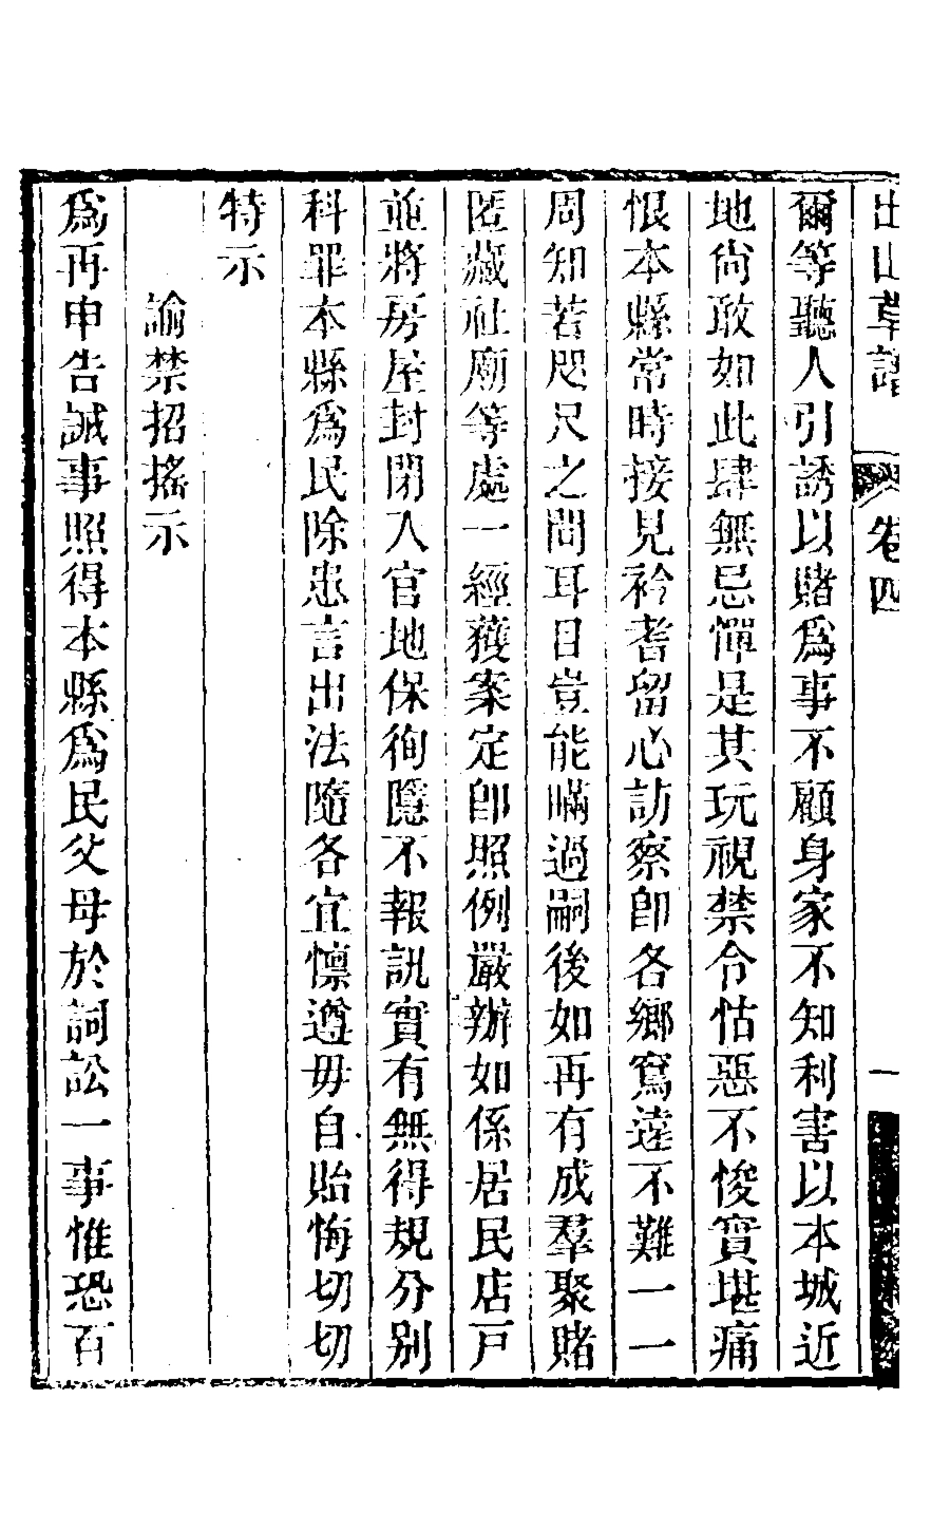 出山草譜 卷四 一
爾等聽人引誘以賭爲事不顧身家不知利害以本城近
地尙敢如此肆無忌憚是其玩視禁令怙惡不悛實堪痛
恨本縣常時接見衿耆留心訪察卽各鄉寫遠不難一一
周知若咫尺之間耳目豈能瞞過嗣後如再有成羣聚賭
匿藏社廟等處一經獲案定卽照例嚴辦如係居民店戸
並將房屋封閉入官地保徇隱不報訊實有無得規分别
科罪本縣爲民除患言出法隨各宜懍遵毋自貽悔切切
特示
諭禁招搖示
爲再申告誡事照得本縣爲民父母於詞訟一事惟恐百